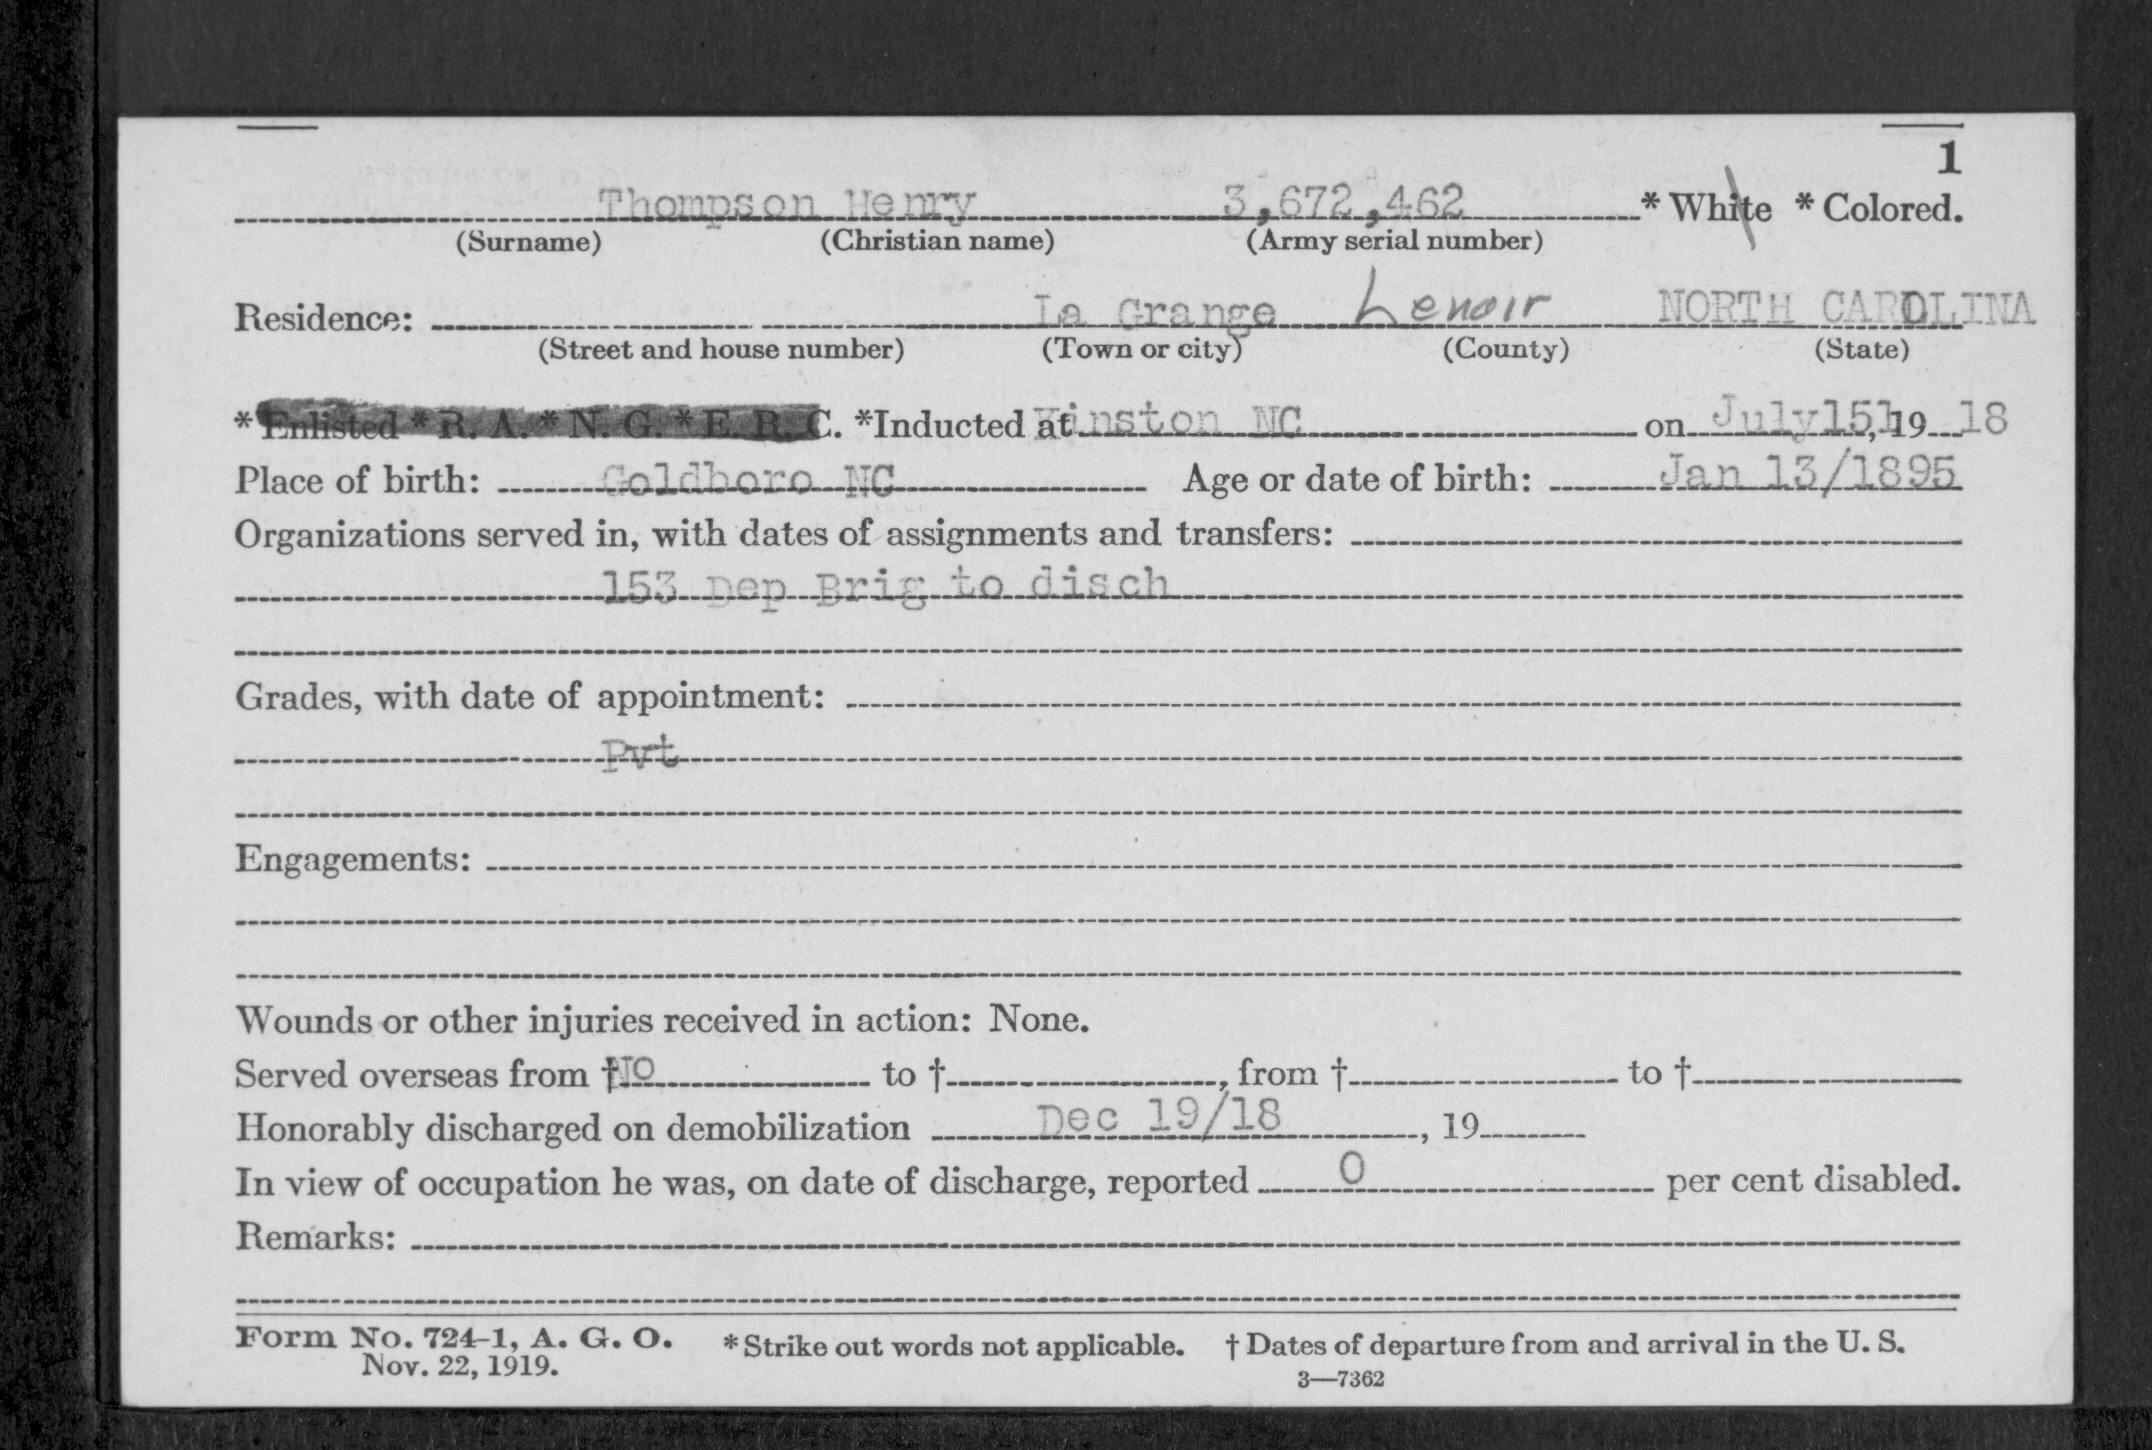 1
Thompson Henry 3,672,462 * White * Colored.
(Surname) (Christian name) (Army serial number)
Residence: La Grange Lenoir NORTH CAROLINA
(Street and house number) (Town or city) (County) (State)
* Enlisted * R. A. * N. G. * E. R. C. *Inducted at Kinston NC on July 15, 19 18
Place of birth: Goldboro NC Age or date of birth: Jan 13/1895
Organizations served in, with dates of assignments and transfers:
153 Dep Brig to disch
Grades, with date of appointment:
Pvt
Engagements:
Wounds or other injuries received in action: None.
Served overseas from † No to † , from † to †
Honorably discharged on demobilization Dec 19/18 , 19
In view of occupation he was, on date of discharge, reported 0 per cent disabled.
Remarks:
Form No. 724-1, A. G. O. * Strike out words not applicable. † Dates of departure from and arrival in the U. S.
Nov. 22, 1919. 3—7362